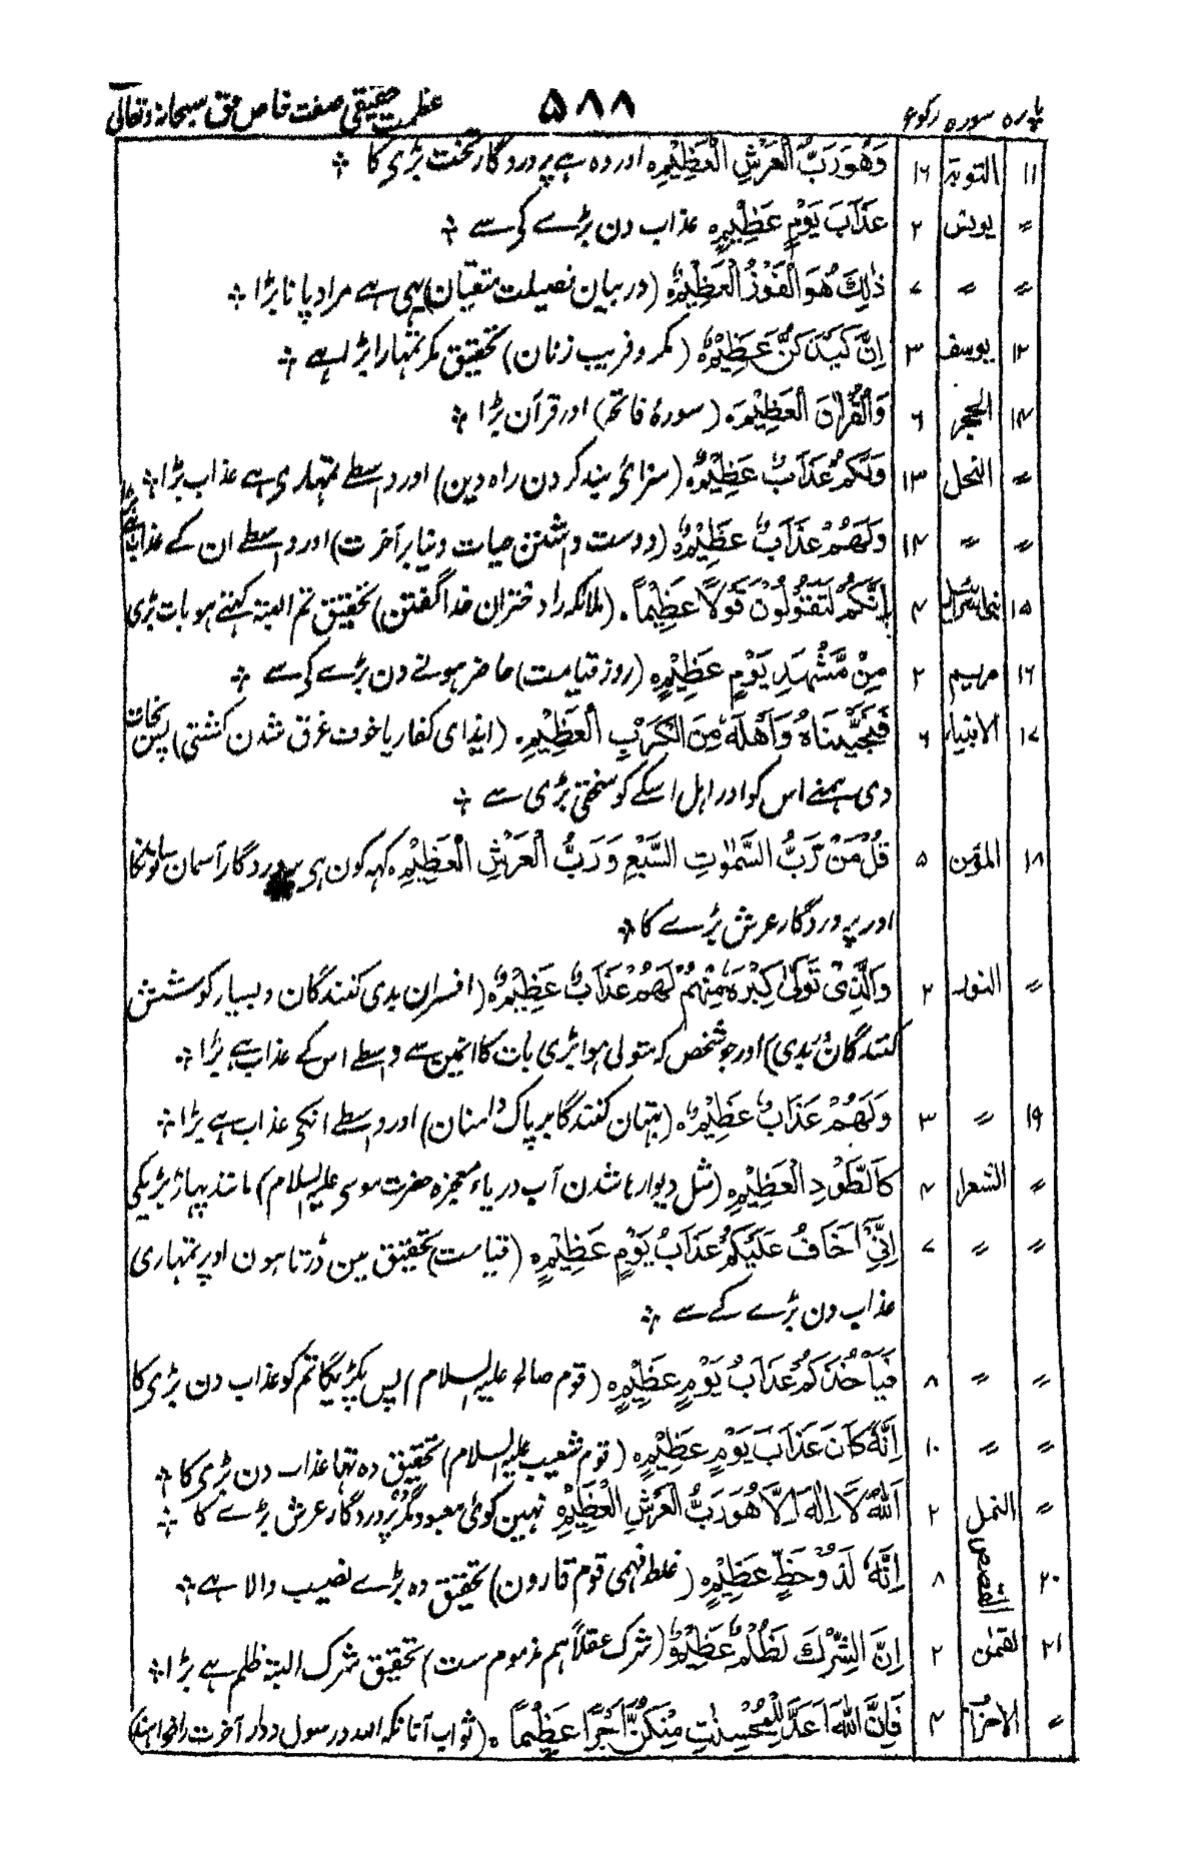 پارہ سورہ رکوع ۵۸۸ عظمت حقیقی صفت خاص حق سبحانہ وتعالیٰ
۱۱ التوبۃ ۱۶ وَهُوَ رَبُّ الْعَرْشِ الْعَظِيْمِ ہ اور وہ ہے پروردگار تخت بڑی کا ؞
〃 یونس ۲ عَذَابَ يَوْمٍ عَظِيْمٍ ہ عذاب دن بڑے کی سے ؞
〃 〃 ۷ ذٰلِكَ هُوَ الْفَوْزُ الْعَظِيْمُ ہ (در بیان فضیلت متقیان) یہی ہے مراد پانا بڑا ؞
۱۲ یوسف ۳ اِنَّ كَيْدَكُنَّ عَظِيْمٌ ہ (مکر و فریب زنان) تحقیق مکر تمہارا بڑا ہے ؞
۱۴ الحجر ۶ وَالْقُرْاٰنَ الْعَظِيْمَ ہ (سورۂ فاتحہ) اور قرآن بڑا ؞
〃 النحل ۱۳ وَلَكُمْ عَذَابٌ عَظِيْمٌ ہ (سزائ بند کردن راہ دین) اور واسطے تمہاری ہے عذاب بڑا ؞
〃 〃 ۱۴ وَلَهُمْ عَذَابٌ عَظِيْمٌ ہ (دوست داشتن حیات دنیا بر آخرت) اور واسطے ان کے عذاب ہے بڑا
۱۵ بنی اسرائیل ۴ اِنَّكُمْ لَتَقُوْلُوْنَ قَوْلًا عَظِيْمًا ہ (ملائکہ را دختران خدا گفتن) تحقیق تم البتہ کہتے ہو بات بڑی
۱۶ مریم ۲ مِنْ مَّشْهَدِ يَوْمٍ عَظِيْمٍ ہ (روز قیامت) حاضر ہونے دن بڑے کی سے ؞
۱۷ الانبیاء ۶ فَنَجَّيْنَاهُ وَاَهْلَهٗ مِنَ الْكَرْبِ الْعَظِيْمِ ہ (ایذای کفار یا خوف غرق شدن کشتی) پس نجات
دی ہمنے اس کو اور اہل اسکے کو سختی بڑی سے ؞
۱۸ المؤمن ۵ قُلْ مَنْ رَّبُّ السَّمٰوٰتِ السَّبْعِ وَرَبُّ الْعَرْشِ الْعَظِيْمِ ہ کہہ کون ہی پروردگار آسمان ساتونکا
اور پروردگار عرش بڑے کا ؞
〃 النور ۲ وَالَّذِىْ تَوَلّٰى كِبْرَهٗ مِنْهُمْ لَهٗ عَذَابٌ عَظِيْمٌ ہ (افسران بدی کنندگان و بسیار کوشش
کنندگان بدی) اور جو شخص کہ متولی ہوا بڑی بات کا انمین سے واسطے اس کے عذاب ہے بڑا ؞
۱۹ 〃 ۳ وَلَهُمْ عَذَابٌ عَظِيْمٌ ہ (بہتان کنندگا بر پاک دامنان) اور واسطے انکی عذاب ہے بڑا ؞
〃 الشعرا ۴ كَالطَّوْدِ الْعَظِيْمِ ہ (مثل دیوارہا شدن آب دریاء معجزہ حضرت موسی علیہ السلام) مانند پہاڑ بڑیکی
〃 〃 ۷ اِنِّىْ اَخَافُ عَلَيْكُمْ عَذَابَ يَوْمٍ عَظِيْمٍ ہ (قیامت) تحقیق مین ڈرتا ہون اوپر تمہاری
عذاب دن بڑے کے سے ؞
〃 〃 ۸ فَيَاْخُذَكُمْ عَذَابُ يَوْمٍ عَظِيْمٍ ہ (قوم صالح علیہ السلام) پس پکڑیگا تم کو عذاب دن بڑی کا
〃 〃 ۱۰ اِنَّهٗ كَانَ عَذَابَ يَوْمٍ عَظِيْمٍ ہ (قوم شعیب علیہ السلام) تحقیق وہ تہا عذاب دن بڑی کا ؞
〃 النمل ۲ اَللّٰهُ لَا اِلٰهَ اِلَّا هُوَ رَبُّ الْعَرْشِ الْعَظِيْمِ ہ نہین کوئی معبود مگر وہ پروردگار عرش بڑے کا ؞
۲۰ القصص ۸ اِنَّهٗ لَذُوْ حَظٍّ عَظِيْمٍ ہ (غلط فہمی قوم قارون) تحقیق وہ بڑے نصیب والا ہے ؞
۲۱ لقمٰن ۲ اِنَّ الشِّرْكَ لَظُلْمٌ عَظِيْمٌ ہ (شرک عقلاً ہم مذموم ست) تحقیق شرک البتہ ظلم ہے بڑا ؞
〃 الاحزاب ۴ فَاِنَّ اللّٰهَ اَعَدَّ لِلْمُحْسِنٰتِ مِنْكُنَّ اَجْرًا عَظِيْمًا ہ (ثواب آنانکہ اللہ و رسول و دار آخرت را خواہند)